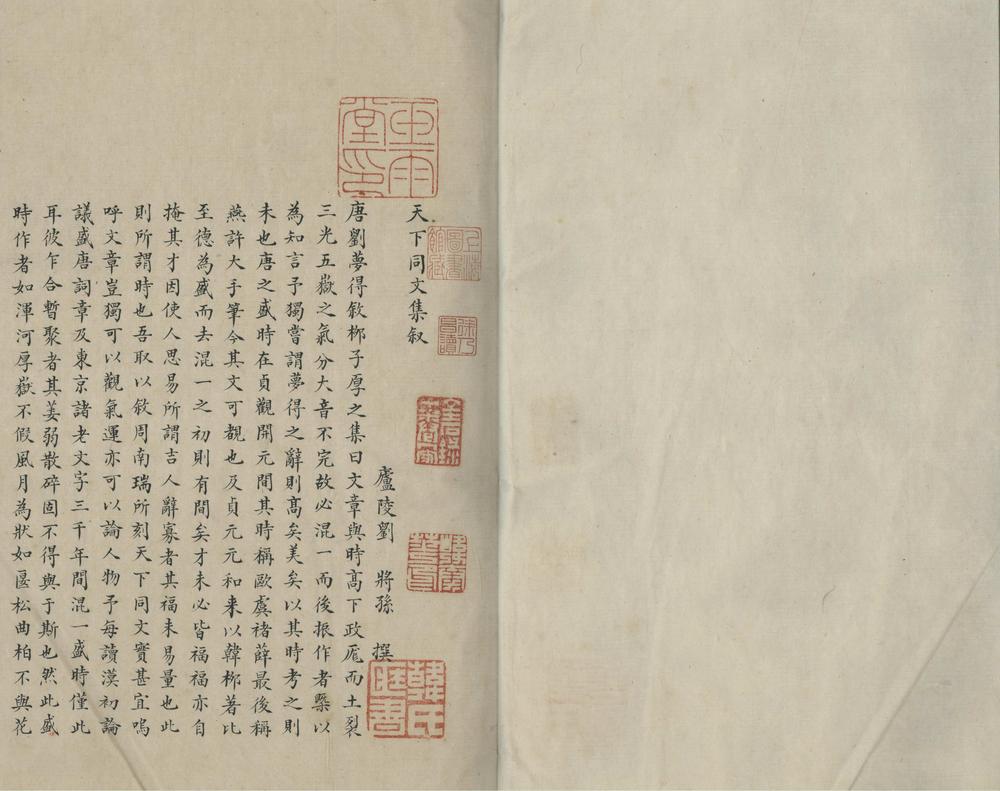 天下同文集叙
廬陵劉 將孫 撰
唐劉夢得敘桞子厚之集曰文章與時髙下政厖而土裂
三光五嶽之氣分大音不完故必混一而後振作者槩以
為知言予獨嘗謂夢得之辭則髙矣美矣以其時考之則
未也唐之盛時在貞觀開元間其時稱歐虞禇薛最後稱
燕許大手筆今其文可覩也及貞元元和来以韓桞著比
至德為盛而去混一之初則有間矣才未必皆福福亦自
掩其才因使人思易所謂吉人辭寡者其福未易量也此
則所謂時也吾取以敘周南瑞所刻天下同文實甚宜嗚
呼文章豈獨可以觀氣運亦可以論人物予每讀漢初論
議盛唐詞章及東京諸老文字三千年間混一盛時僅此
耳彼乍合暫聚者其萎弱散碎固不得與于斯也然此盛
時作者如渾河厚嶽不假風月為狀如偃松曲柏不與花
雨堂印
上海圖書館藏
韓氏
書